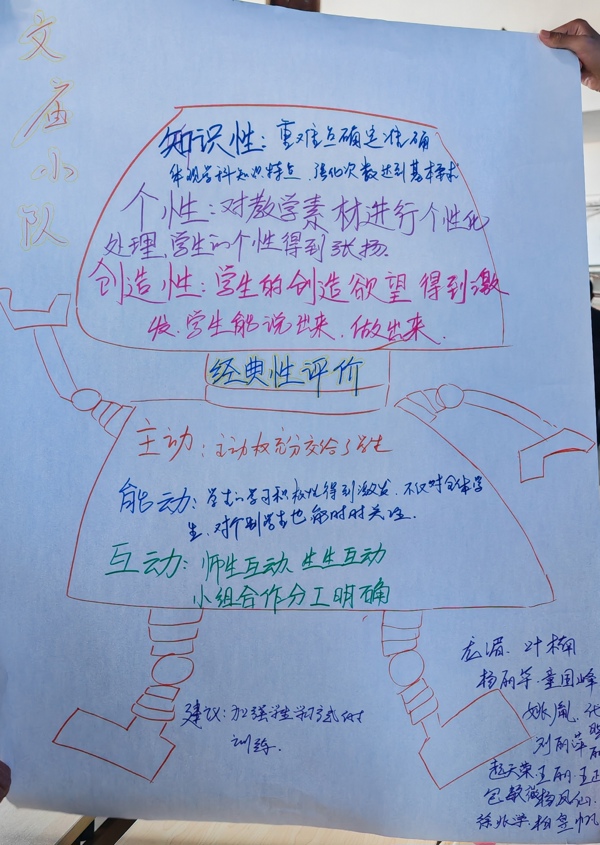 文庙小队
知识性：重难点确定准确
体现学科知识特点，强化次数达到基本要求
个性：对教学素材进行个性化
处理，学生的个性得到张扬.
创造性：学生的创造欲望得到激
发.学生能说出来.做出来.
经典性评价
主动：主动权充分交给了学生
能动：学生的学习积极性得到激发.不仅对全体学
生.对个别学生也能时时关注.
互动：师生互动.生生互动
小组合作分工明确
建议：加强学生学习方式的
训练.
叶楠
杨丽华.童国峰
姚胤.
刘丽萍
赵天荣.王丽.王
包敏薇杨凤仙.
徐兆梁.